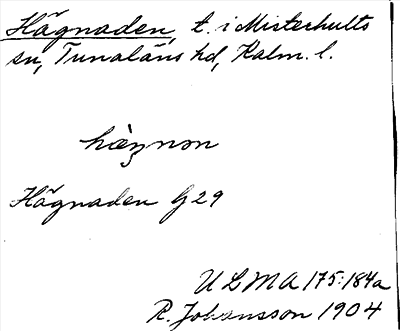 Hägnaden, t. i Misterhults
sn, Tunaläns hd, Kalm. l.
hæŋnon
Hägnaden G 29
ULMA 175:184a
R. Johansson 1904